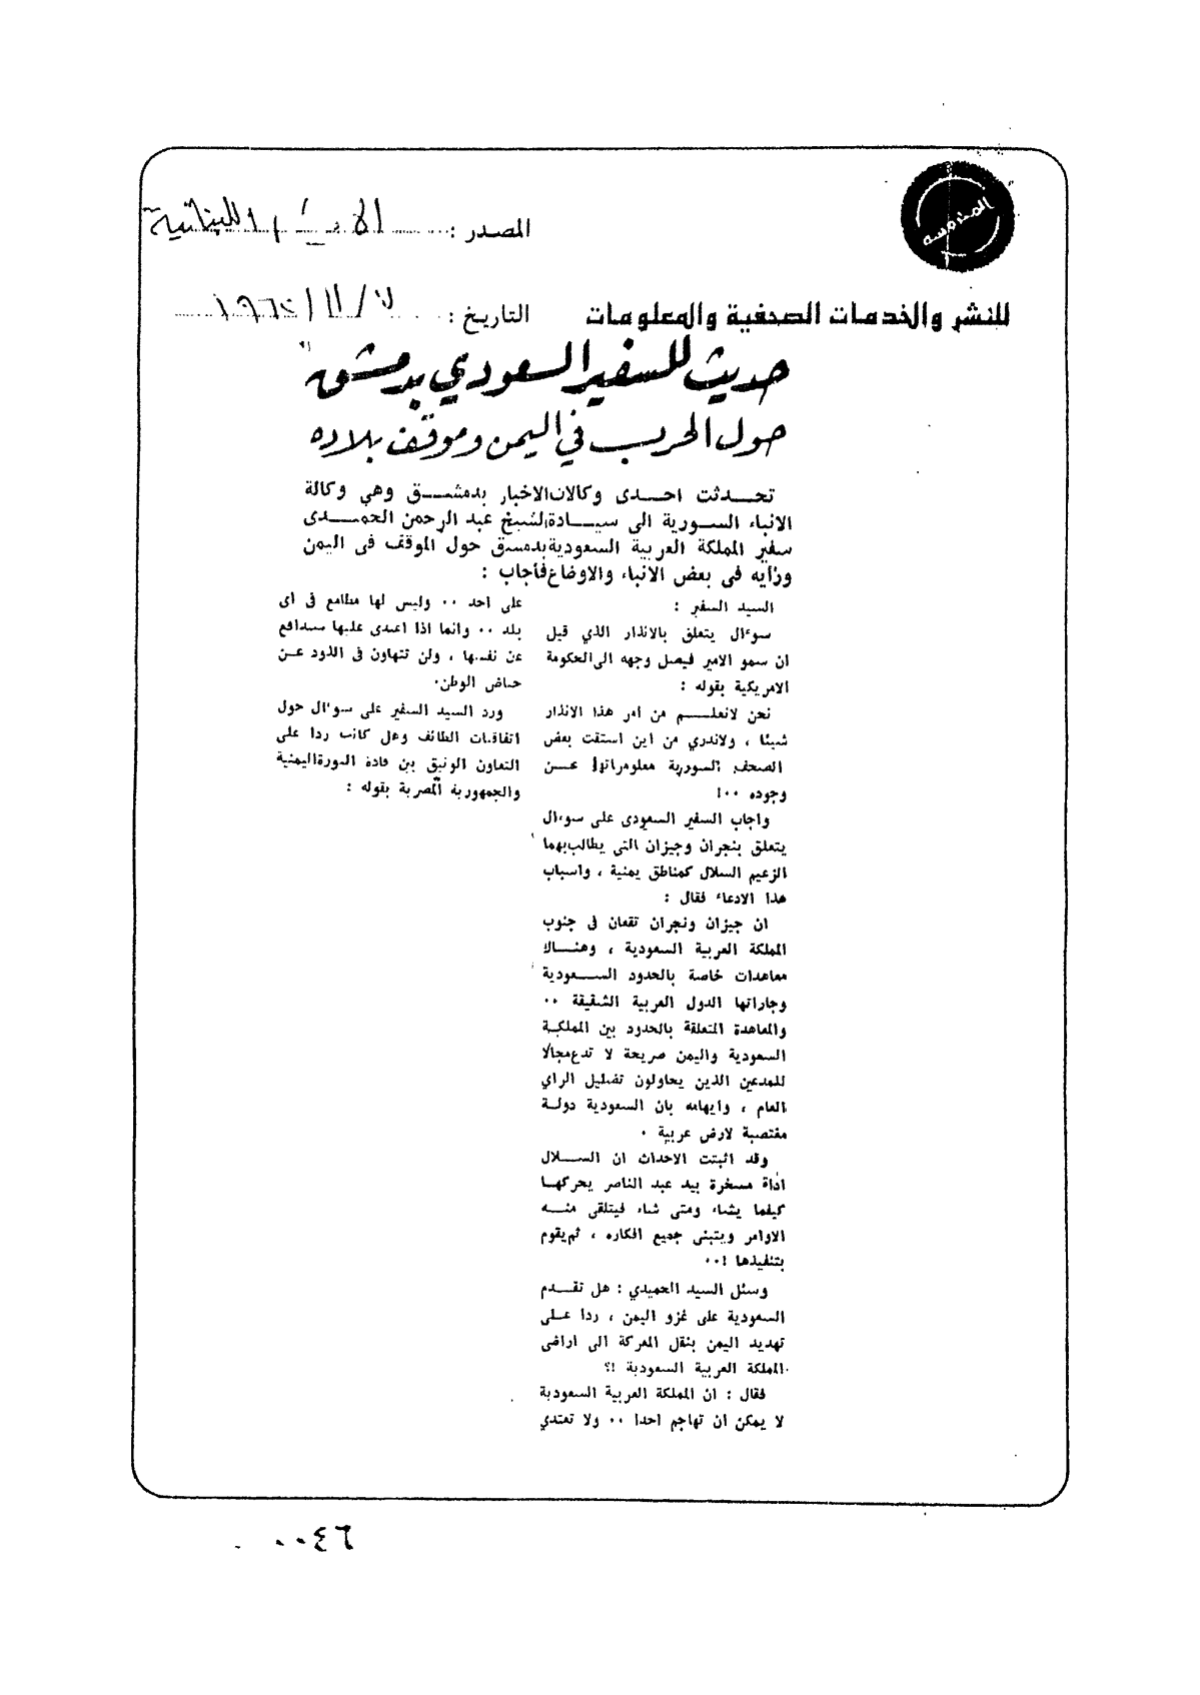 المصدر :
للنشر والخدمات الصحفية والمعلومات
التاريخ : ١١ /
حديث للسفير السعودي بدمشق
حول الحرب في اليمن وموقف بلاده
تحـدثت احـدى وكالات الاخبار بدمشـق وهي وكالة
الانباء السـورية الى سيـادة الشيخ عبد الرحمن الحمـدى
سفير المملكة العربية السعودية بدمسق حول الموقف فى اليمن
ورأيه فى بعض الانباء والاوضاع فأجاب :
السيد السفير :
سوءال يتعلق بالانذار الذي قيل
ان سمو الامير فيصل وجهه الى الحكومة
الامريكية بقوله :
نحن لانعلـم من امر هذا الانذار
شيئا ، ولاندري من اين استقت بعض
الصحف السورية معلوماتها عـن
وجوده ٠٠!
واجاب السفير السعودى على سوءال
يتعلق بنجران وجيزان التى يطالب بهما
الزعيم السلال كمناطق يمنية ، واسباب
هذا الادعاء فقال :
ان جيزان ونجران تقعان فى جنوب
المملكة العربية السعودية ، وهنـالا
معاهدات خاصة بالحدود السـعودية
وجاراتها الدول العربية الشقيقة ٠٠
والمعاهدة المتعلقة بالحدود بين المملكـة
السعودية واليمن صريحة لا تدع مجالا
للمدعين الذين يحاولون تضليل الراي
العام ، وايهامه بان السعودية دولـة
مغتصبة لارض عربية ٠
وقد اثبتت الاحداث ان السـلال
اداة مسخرة بيد عبد الناصر يحركهـا
كيفما يشاء ومتى شاء فيتلقى منـه
الاوامر ويتبنى جميع افكاره ، ثم يقوم
بتنفيذها !٠٠
وسئل السيد الحميدي : هل تقـدم
السعودية على غزو اليمن ، ردا علـى
تهديد اليمن بنقل المعركة الى اراضى
المملكة العربية السعودية !؟
فقال : ان المملكة العربية السعودية
لا يمكن ان تهاجم احدا ٠٠ ولا تعتدي
على احد ٠٠ وليس لها مطامع فى اى
بلد ٠٠ وانما اذا اعتدى عليها ستدافع
عن نفسها ، ولن تتهاون فى الذود عـن
حياض الوطن٠
ورد السيد السفير على سوءال حول
اتفاقيات الطائف وهل كانت ردا على
التعاون الوثيق بين قادة الثورة اليمنية
والجمهورية المصرية بقوله :
٠٠٤٦